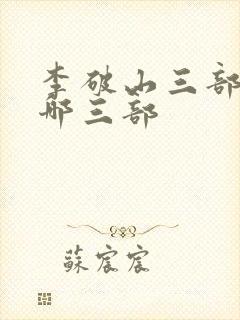 李破山三部
哪三部
蘇宸宸